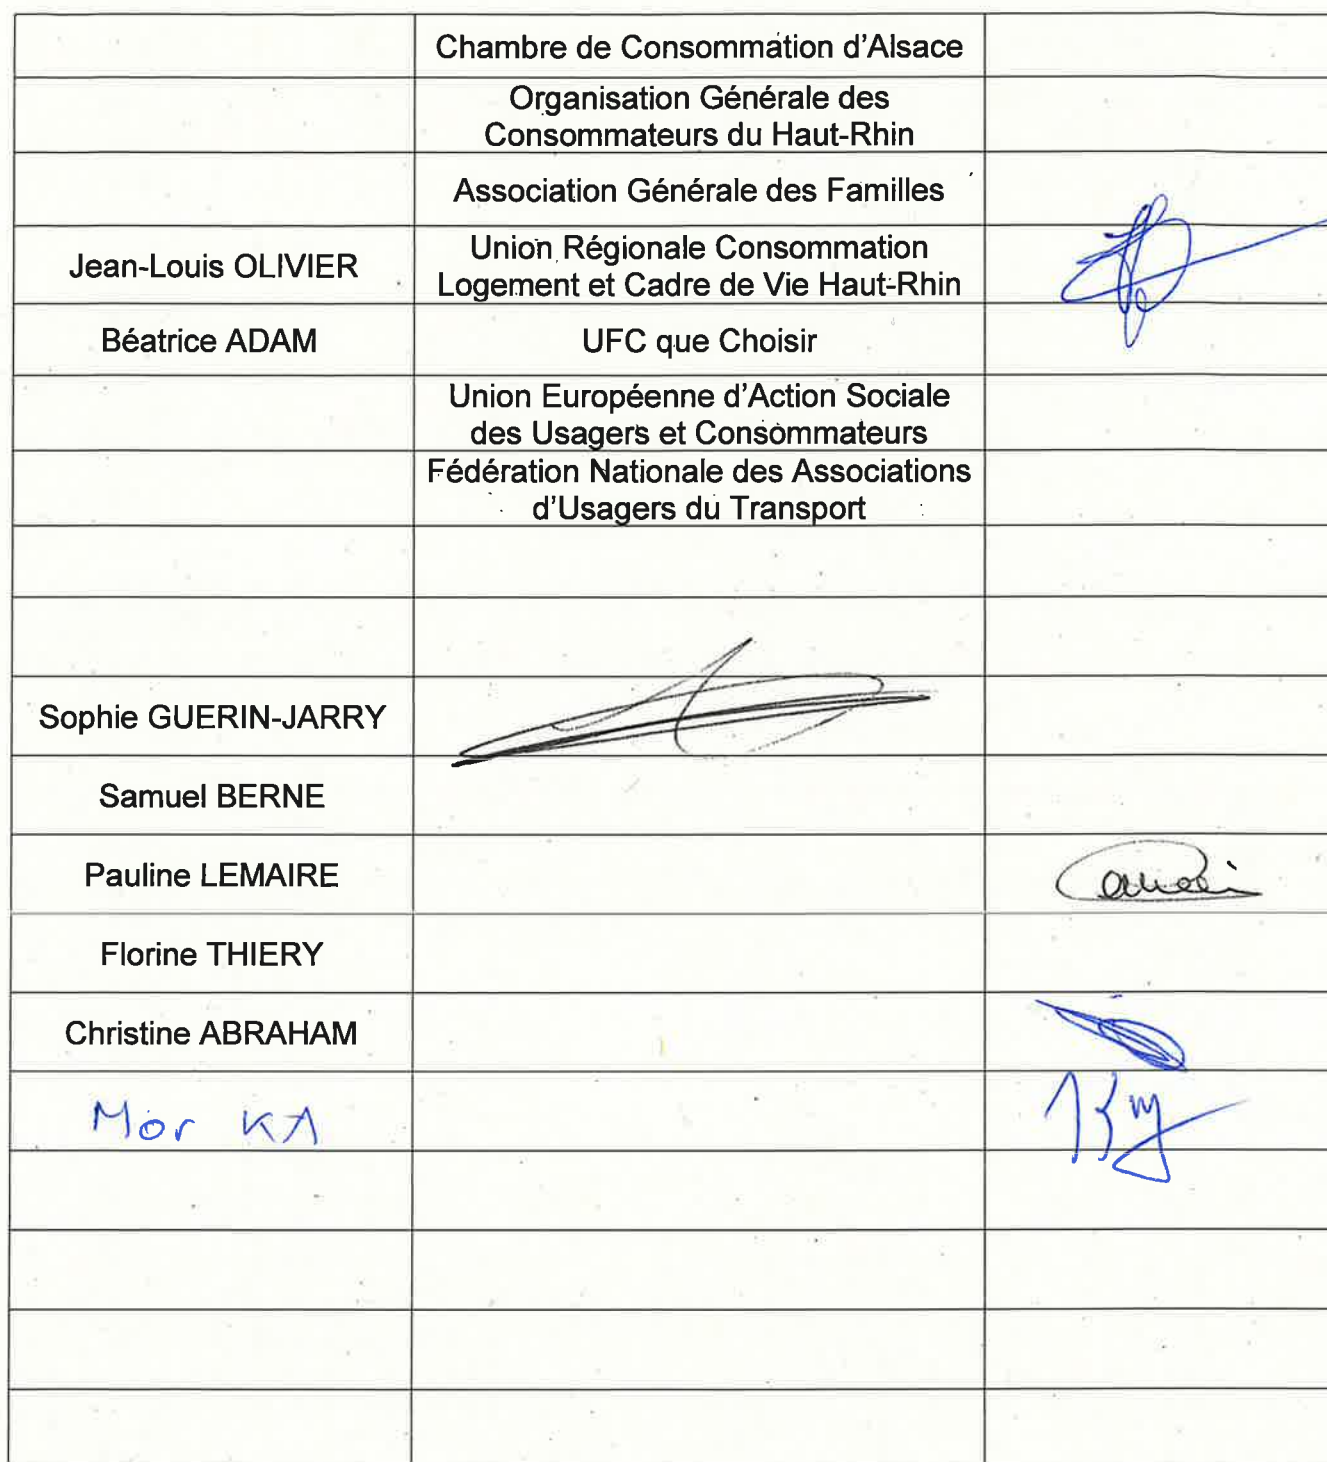 Chambre de Consommation d'Alsace
Organisation Générale des
Consommateurs du Haut-Rhin
Association Générale des Familles
Jean-Louis OLIVIER
Union Régionale Consommation
Logement et Cadre de Vie Haut-Rhin
Béatrice ADAM
UFC que Choisir
Union Européenne d'Action Sociale
des Usagers et Consommateurs
Fédération Nationale des Associations
d'Usagers du Transport
Sophie GUERIN-JARRY
Samuel BERNE
Pauline LEMAIRE
Florine THIERY
Christine ABRAHAM
Mor KA